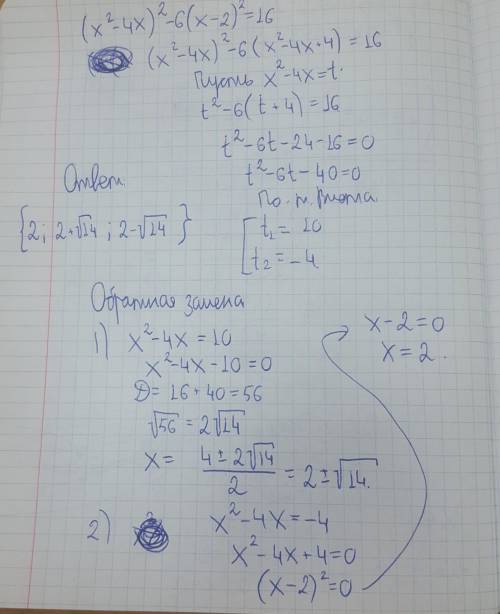 (x²-4x)²-6(x-2)²=16
(x²-4x)²-6(x²-4x+4)=16
Пусть x²-4x=t.
t²-6(t+4)=16
t²-6t-24-16=0
t²-6t-40=0
По т. Виета.
[t₁= 10
[t₂= -4
Ответ.
{2; 2+√14; 2-√14}
Обратная замена
1) x²-4x=10
x²-4x-10=0
D=16+40=56
√56=2√14
x= (4±2√14)/2 = 2±√14.
2) x²-4x=-4
x²-4x+4=0
(x-2)²=0
x-2=0
x=2.